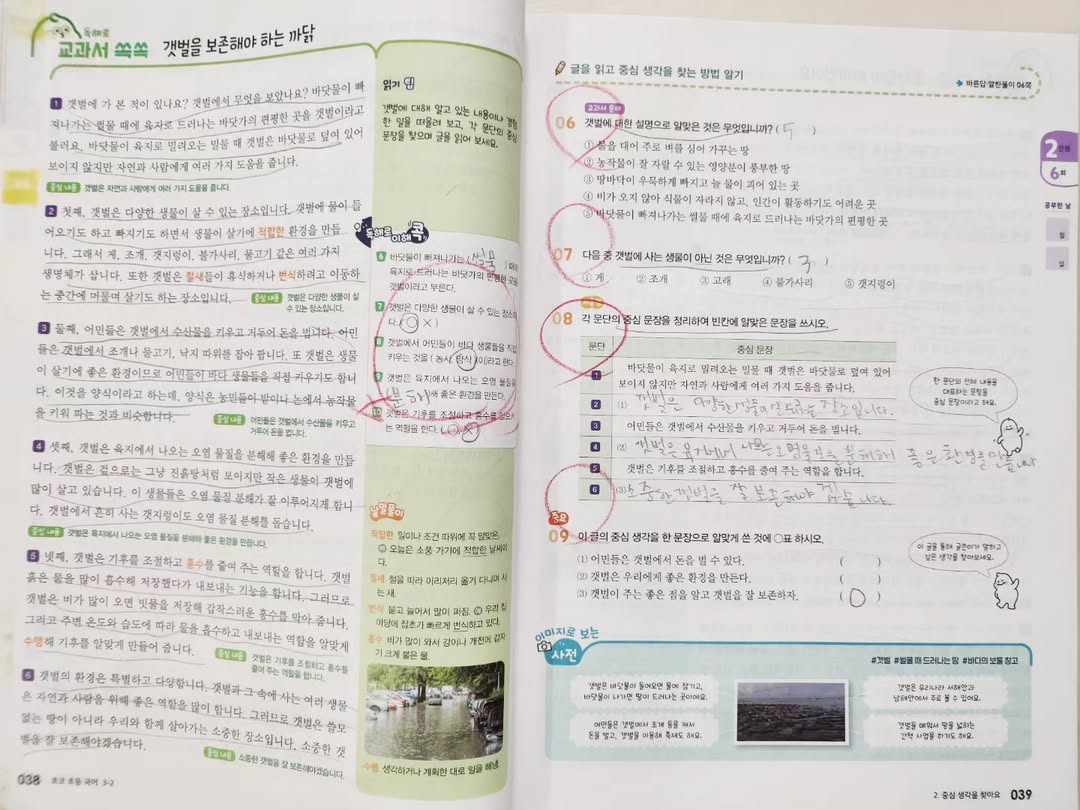 독해로
교과서 쏙쏙 갯벌을 보존해야 하는 까닭
1 갯벌에 가 본 적이 있나요? 갯벌에서 무엇을 보았나요? 바닷물이 빠
져나가는 썰물 때에 육지로 드러나는 바닷가의 편평한 곳을 갯벌이라고
불러요. 바닷물이 육지로 밀려오는 밀물 때 갯벌은 바닷물로 덮여 있어
보이지 않지만 자연과 사람에게 여러 가지 도움을 줍니다.
중심 내용 갯벌은 자연과 사람에게 여러 가지 도움을 줍니다.
2 첫째, 갯벌은 다양한 생물이 살 수 있는 장소입니다. 갯벌에 물이 들
어오기도 하고 빠지기도 하면서 생물이 살기에 적합한 환경을 만듭
니다. 그래서 게, 조개, 갯지렁이, 불가사리, 물고기 같은 여러 가지
생명체가 삽니다. 또한 갯벌은 철새들이 휴식하거나 번식하려고 이동하
는 중간에 머물며 살기도 하는 장소입니다.
중심 내용 갯벌은 다양한 생물이 살
수 있는 장소입니다.
3 둘째, 어민들은 갯벌에서 수산물을 키우고 거두어 돈을 법니다. 어민
들은 갯벌에서 조개나 물고기, 낙지 따위를 잡아 팝니다. 또 갯벌은 생물
이 살기에 좋은 환경이므로 어민들이 바다 생물들을 직접 키우기도 합니
다. 이것을 양식이라고 하는데, 양식은 농민들이 밭이나 논에서 농작물
을 키워 파는 것과 비슷합니다.
중심 내용 어민들은 갯벌에서 수산물을 키우고
거두어 돈을 법니다.
4 셋째, 갯벌은 육지에서 나오는 오염 물질을 분해해 좋은 환경을 만듭
니다. 갯벌은 겉으로는 그냥 진흙탕처럼 보이지만 작은 생물이 갯벌에
많이 살고 있습니다. 이 생물들은 오염 물질 분해가 잘 이루어지게 합니
다. 갯벌에서 흔히 사는 갯지렁이도 오염 물질 분해를 돕습니다.
중심 내용 갯벌은 육지에서 나오는 오염 물질을 분해해 좋은 환경을 만듭니다.
5 넷째, 갯벌은 기후를 조절하고 홍수를 줄여 주는 역할을 합니다. 갯벌
흙은 물을 많이 흡수해 저장했다가 내보내는 기능을 합니다. 그러므로
갯벌은 비가 많이 오면 빗물을 저장해 갑작스러운 홍수를 막아 줍니다.
그리고 주변 온도와 습도에 따라 물을 흡수하고 내보내는 역할을 알맞게
수행해 기후를 알맞게 만들어 줍니다.
중심 내용 갯벌은 기후를 조절하고 홍수를
줄여 주는 역할을 합니다.
6 갯벌의 환경은 특별하고 다양합니다. 갯벌과 그 속에 사는 여러 생물
은 자연과 사람을 위해 좋은 역할을 많이 합니다. 그러므로 갯벌은 쓸모
없는 땅이 아니라 우리와 함께 살아가는 소중한 장소입니다. 소중한 갯
벌을 잘 보존해야겠습니다.
중심 내용 소중한 갯벌을 잘 보존해야겠습니다.
038 초코 초등 국어 3-2
읽기 전
갯벌에 대해 알고 있는 내용이나 경험
한 일을 떠올려 보고, 각 문단의 중심
문장을 찾으며 글을 읽어 보세요.
독해로 이해 콕
6 바닷물이 빠져나가는 (썰물) 때에
육지로 드러나는 바닷가의 편평한 곳을
갯벌이라고 부른다.
7 갯벌은 다양한 생물이 살 수 있는 장소이
다. (○ ×)
8 갯벌에서 어민들이 바다 생물들을 직접
키우는 것을 ( 농사, 양식 )이라고 한다.
9 갯벌은 육지에서 나오는 오염 물질을
분해해 좋은 환경을 만든다.
10 갯벌은 기후를 조절하고 홍수를 일으키
는 역할을 한다. (○ ×)
낱말풀이
적합한 일이나 조건 따위에 꼭 알맞은.
예 오늘은 소풍 가기에 적합한 날씨이
다.
철새 철을 따라 이리저리 옮겨 다니며 사
는 새.
번식 붇고 늘어서 많이 퍼짐. 예 우리 집
마당에 잡초가 빠르게 번식하고 있다.
홍수 비가 많이 와서 강이나 개천에 갑자
기 크게 불은 물.
수행 생각하거나 계획한 대로 일을 해냄.
글을 읽고 중심 생각을 찾는 방법 알기
바른답·알찬풀이 06쪽
교과서 문제
06 갯벌에 대한 설명으로 알맞은 것은 무엇입니까? ( 5 )
① 물을 대어 주로 벼를 심어 가꾸는 땅
② 농작물이 잘 자랄 수 있는 영양분이 풍부한 땅
③ 땅바닥이 우묵하게 빠지고 늘 물이 괴어 있는 곳
④ 비가 오지 않아 식물이 자라지 않고, 인간이 활동하기도 어려운 곳
⑤ 바닷물이 빠져나가는 썰물 때에 육지로 드러나는 바닷가의 편평한 곳
07 다음 중 갯벌에 사는 생물이 아닌 것은 무엇입니까? ( 3 )
① 게 ② 조개 ③ 고래 ④ 불가사리 ⑤ 갯지렁이
08 각 문단의 중심 문장을 정리하여 빈칸에 알맞은 문장을 쓰시오.
문단 중심 문장
1 바닷물이 육지로 밀려오는 밀물 때 갯벌은 바닷물로 덮여 있어
보이지 않지만 자연과 사람에게 여러 가지 도움을 줍니다.
2 (1) 갯벌은 다양한 생물이 살 수 있는 장소입니다.
3 어민들은 갯벌에서 수산물을 키우고 거두어 돈을 법니다.
4 (2) 갯벌은 육지에서 나오는 오염물질을 분해해 좋은 환경을 만듭니다
5 갯벌은 기후를 조절하고 홍수를 줄여 주는 역할을 합니다.
6 (3) 소중한 갯벌을 잘 보존해야 겠습니다.
한 문단의 전체 내용을
대표하는 문장을
중심 문장이라고 해요.
중요
09 이 글의 중심 생각을 한 문장으로 알맞게 쓴 것에 ○표 하시오.
(1) 어민들은 갯벌에서 돈을 벌 수 있다. ( )
(2) 갯벌은 우리에게 좋은 환경을 만든다. ( )
(3) 갯벌이 주는 좋은 점을 알고 갯벌을 잘 보존하자. ( O )
이 글을 통해 글쓴이가 말하고
싶은 생각을 찾아보세요.
이미지로 보는
사전
#갯벌 #썰물 때 드러나는 땅 #바다의 보물 창고
갯벌은 바닷물이 들어오면 물에 잠기고,
바닷물이 나가면 땅이 드러나는 곳이에요.
어민들은 갯벌에서 조개 등을 캐서
돈을 벌고, 갯벌을 이용해 축제도 해요.
갯벌은 우리나라 서해안과
남해안에서 주로 볼 수 있어요.
갯벌을 메워서 땅을 넓히는
간척 사업을 하기도 해요.
2단원
6회
공부한 날
월
일
2. 중심 생각을 찾아요 039